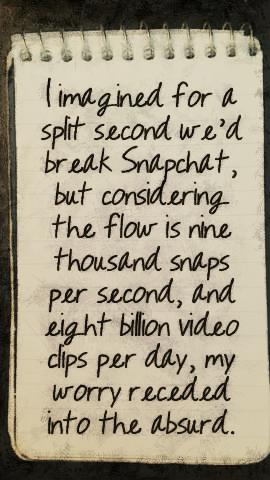 I imagined for a
split second we'd
break Snapchat,
but considering
the flow is nine
thousand snaps
per second, and
eight billion video
clips per day, my
worry receded
into the absurd.